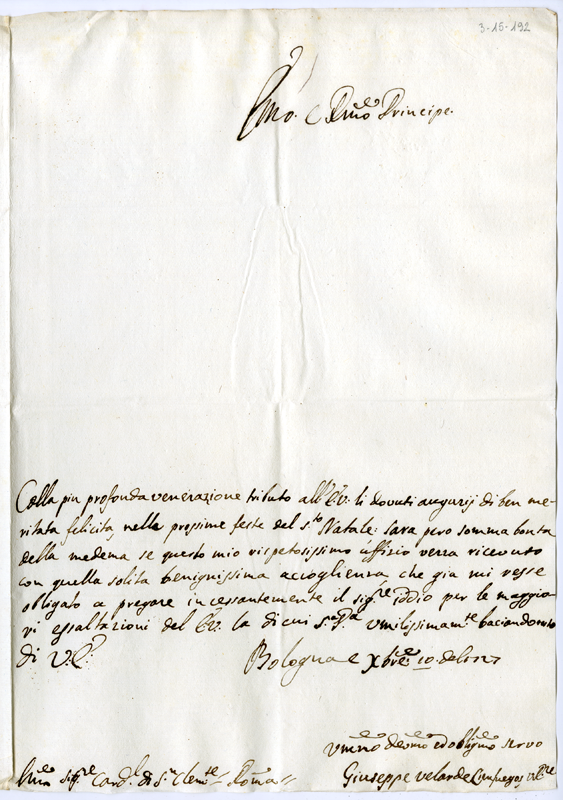 3-15-192
Emo. e Rmo Principe.
Colla piu profonda venerazione tributo all'E.V. li dovuti augurij di ben me-
ritata felicita nella prossime feste del s.to Natale: sara pero somma bonta
della medema se questo mio rispetosissimo uffizio verra ricevuto
con quella solita benignissima accoglienza, che gia mi resse
obligato a pregare incessantemente il sig.re iddio per le maggio-
ri essaltazioni del E.V. la di cui umilissimam.te baciando resto
di V.E.
Bologna e Xbre 10. del
Ummo devmo ed obligmo servo
Emo sig.re Card.l di s.n Clem.te Roma
Giuseppe Velarde Cienfuegos